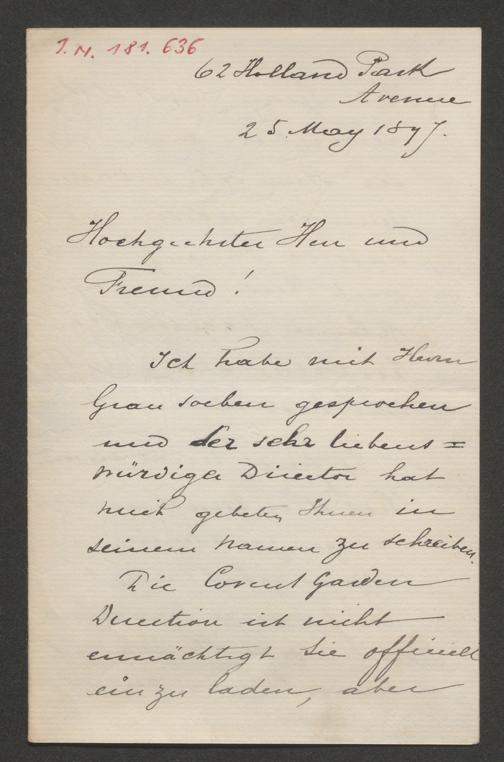 I.N. 181.636
62 Holland Park
Avenue
25 May 1897.
Hochgeehrter Herr und
Freund!
Ich habe mit Herrn
Grau soeben gesprochen
und der sehr liebens=
würdiger Director hat
mich gebeten Ihnen in
seinem Namen zu schreiben.
Die Covent Garden
Direction ist nicht
ermächtigt Sie officiell
einzuladen, aber